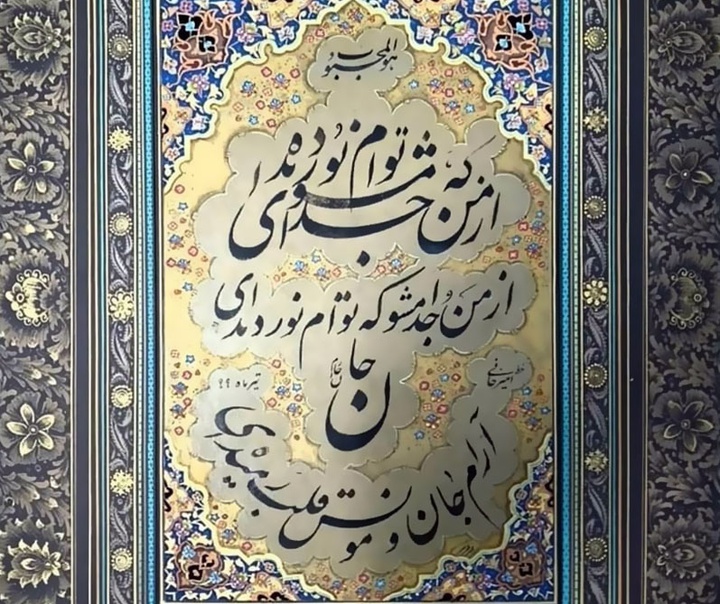 هوالمحبوب
از من که جدا مشو توام نور دیده ای
از من جدا مشو که توام نور دیده ای
جان
خط امیرخانی
تیرماه ۹۹
آرام جان و مونس قلب رمیده ای